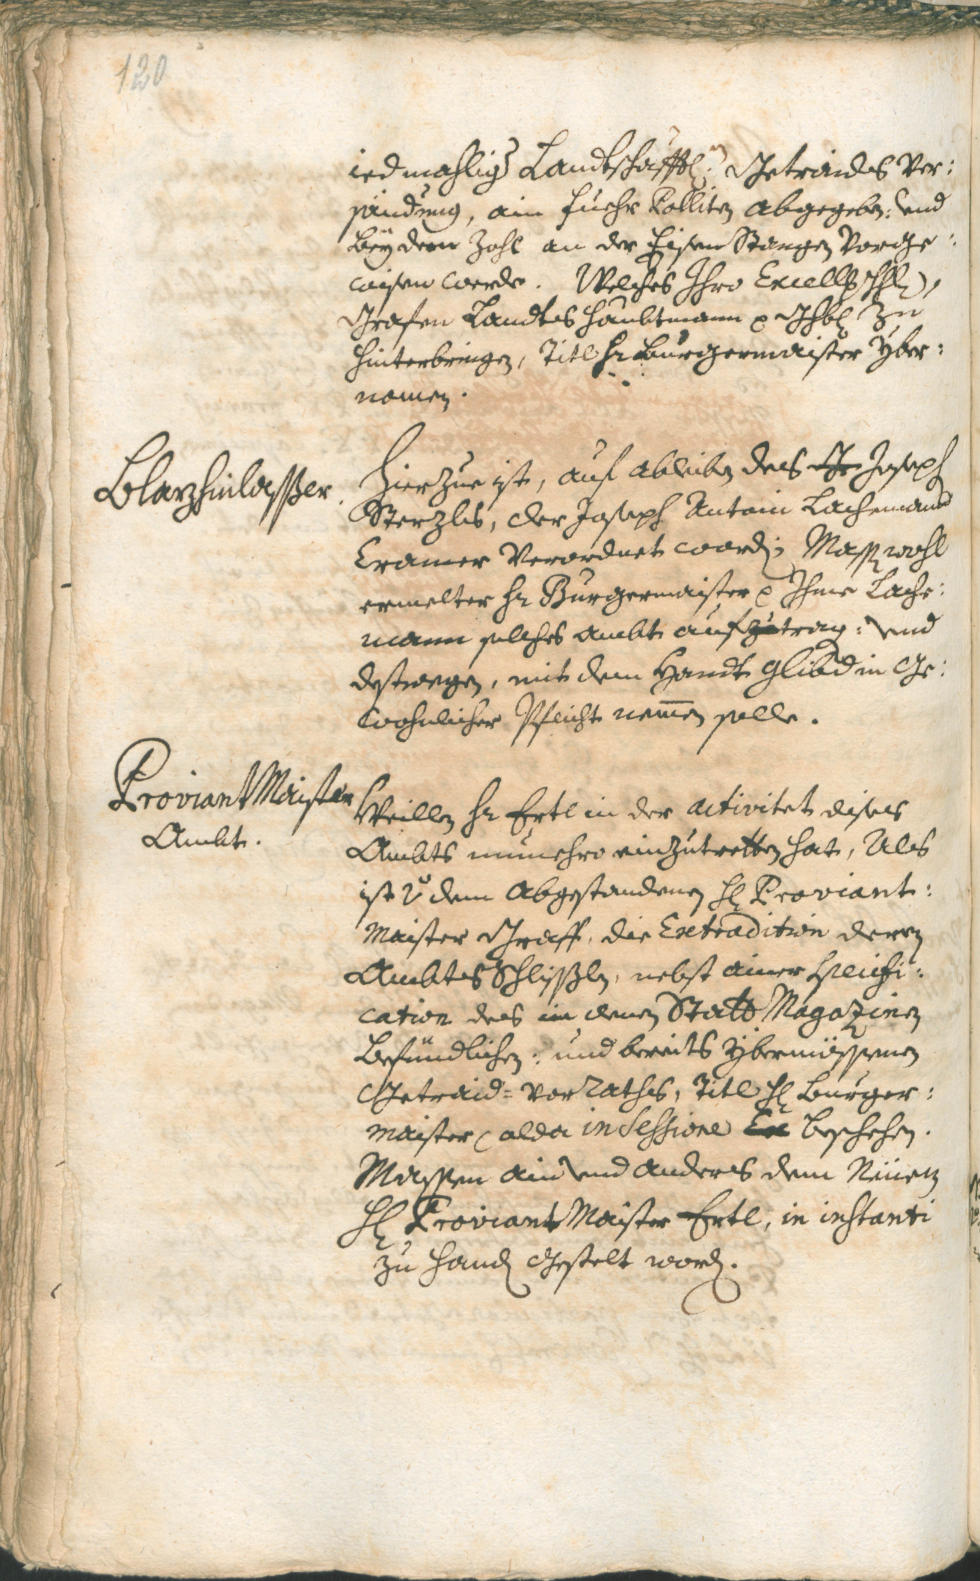 120
iedmahlig Landtschafftl: Getraides Ver:
sändung, ain fuehr Polliten abgegeben: und
bey dem Zohl an der Eisen Stangen Vorge:
wisen werde. Welches Ihro Excell:
Grafen Landts Haubtmann zu
hinterbringen, Titl Hr Burgermaister yber:
nomen.
Blazhinlasser.
Hierzue ist, auf ableiben des Joseph
Sterzls, der Joseph Antoni Lachemann
Cramer Verordnet word; Mass wohl
ermelter Hr Burgermaister Ihme Lache:
mann solches Ambt aufzutrag: und
destwegen, mit dem Handt glibd in Ge:
wohnlicher Pflicht nemen solle.
Proviant Maister
Ambt.
Weillen Hr Ertl in der activitet dises
Ambts nunmehro einzutretten hat, Als
ist v dem abgestandenen H Proviant:
Maister Graff, die Extradition deren
Ambts Schlissln, nebst ainer specifi:
cation des in denen Statt Magazinen
befündlichen: und bereits ybermössenen
Getraid=vorrathes, Titl H Burger:
maister alda in Sessione beschehen.
Massen ain und anders dem Neuen
H Proviant Maister Ertl, in instanti
zu Handen gestelt worden.